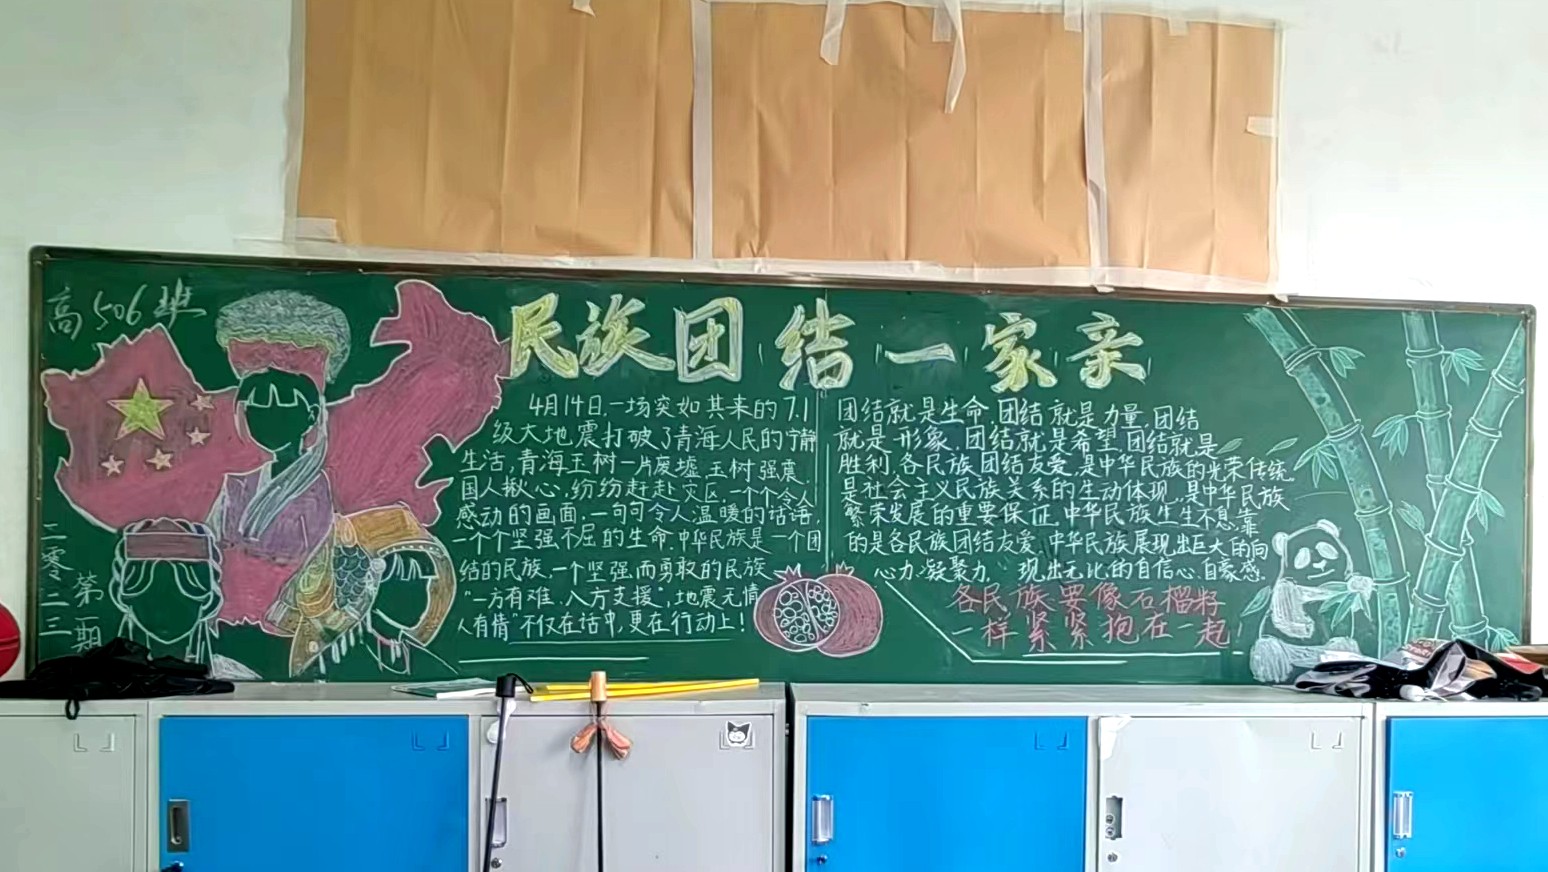 高506班
民族团结一家亲
4月14日,一场突如其来的7.1
级大地震打破了青海人民的宁静
生活,青海玉树一片废墟.玉树强震
国人揪心,纷纷赶赴灾区,一个个令人
感动的画面,一句句令人温暖的话语,
一个个坚强不屈的生命.中华民族是一个团
结的民族,一个坚强而勇敢的民族
"一方有难,八方支援",地震无情
人有情"不仅在话中,更在行动上!
团结就是生命,团结就是力量,团结
就是形象,团结就是希望,团结就是
胜利.各民族团结友爱,是中华民族的光荣传统
是社会主义民族关系的生动体现,是中华民族
繁荣发展的重要保证.中华民族生生不息,靠
的是各民族团结友爱,中华民族展现出巨大的向
心力,凝聚力,现出无比的自信心.自豪感.
各民族要像石榴籽
一样紧紧抱在一起!
二零二三
第一期